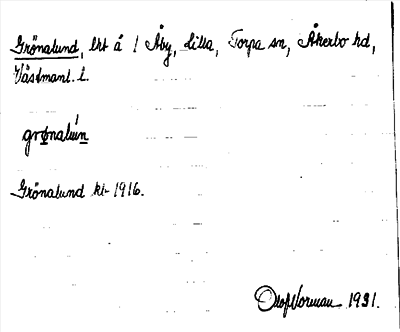 Grönalund, lht å 1 Åby, Lilla, Torpa sn, Åkerbo hd,
Västmanl. l.
grønalu̇́n
Grönalund kb 1916.
Olof Norman 1931.